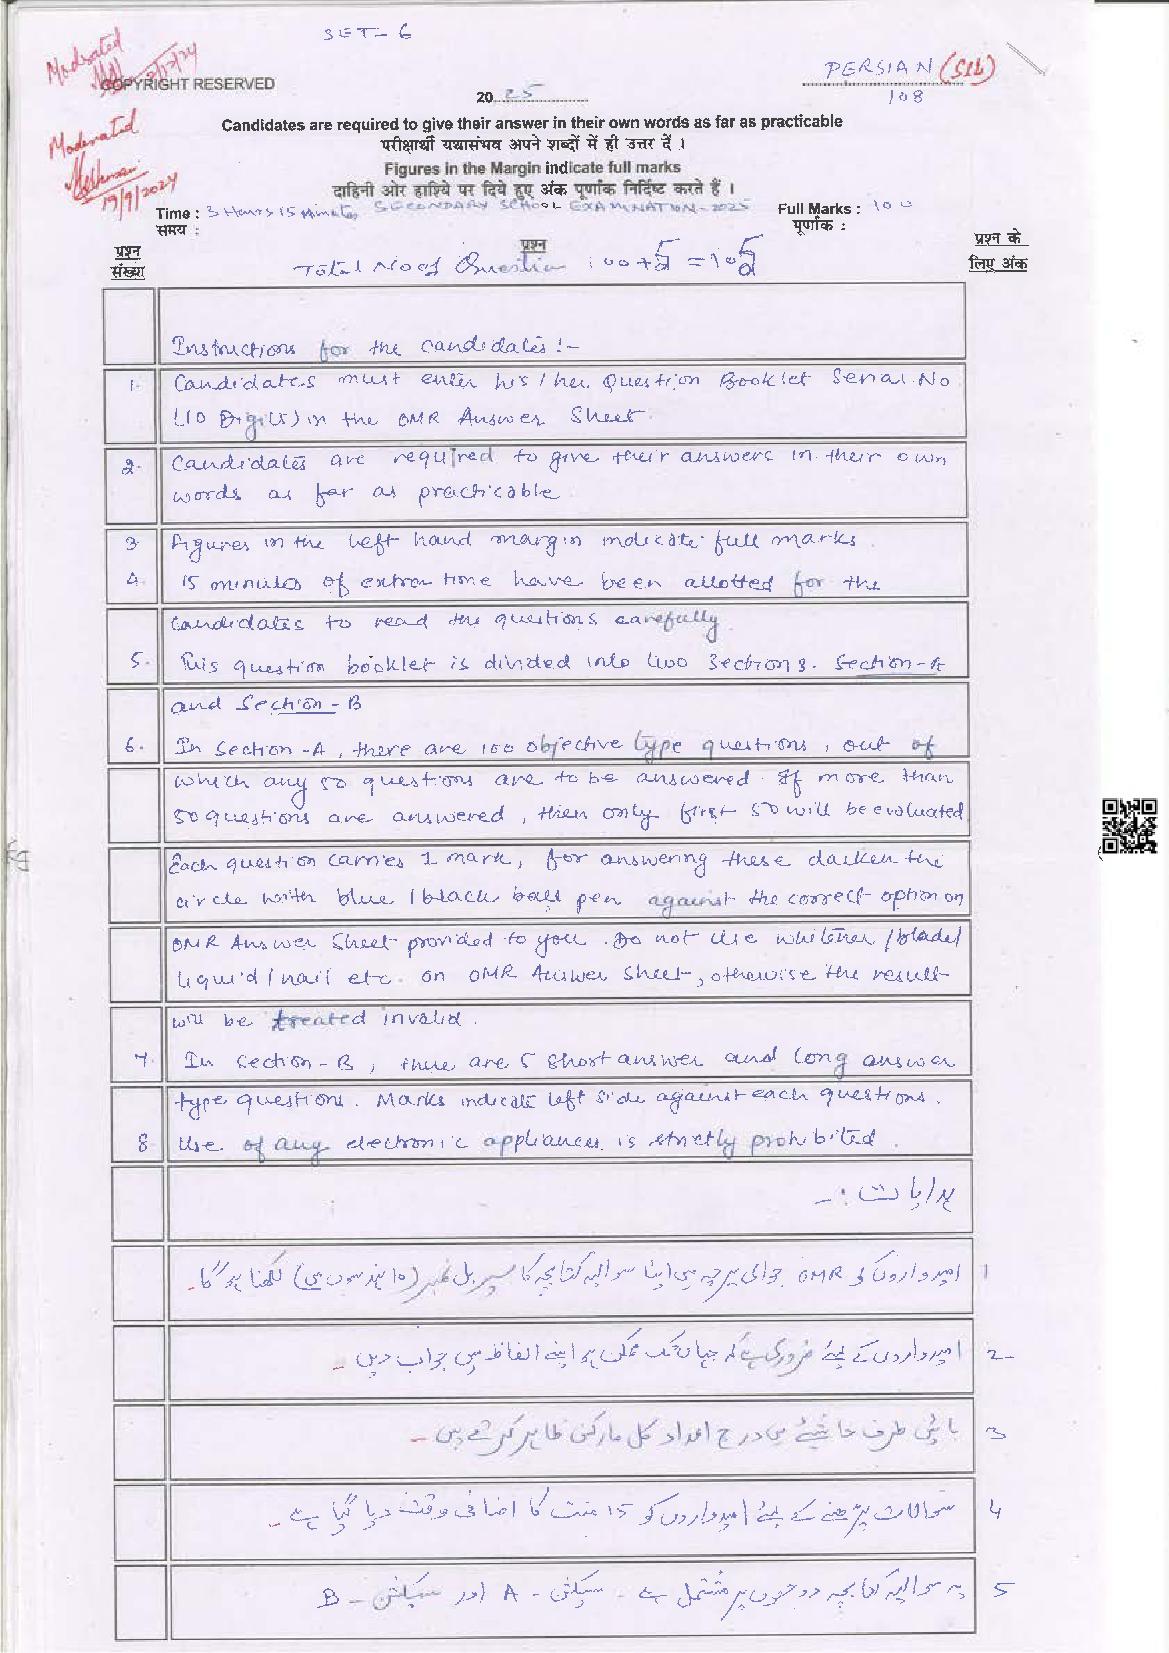 SET-6
Moderated
COPYRIGHT RESERVED
PERSIAN (SIL)
108
20 25
Candidates are required to give their answer in their own words as far as practicable
परीक्षार्थी यथासंभव अपने शब्दों में ही उत्तर दें ।
Moderated
19/9/2024
Figures in the Margin indicate full marks
दाहिनी ओर हाशिये पर दिये हुए अंक पूर्णांक निर्दिष्ट करते हैं ।
Time : 3 Hours 15 Minutes SECONDARY SCHOOL EXAMINATION-2025 Full Marks : 100
समय : पूर्णांक :
प्रश्न संख्या प्रश्न प्रश्न के लिए अंक
Total No of Question 100+5=105
Instructions for the candidates:-
1. Candidates must enter his/her Question Booklet Serial No
(10 Digits) in the OMR Answer Sheet.
2. Candidates are required to give their answers in their own
words as far as practicable
3. Figures in the left hand margin indicate full marks.
4. 15 minutes of extra time have been allotted for the
candidates to read the questions carefully.
5. This question booklet is divided into two sections. Section-A
and Section-B
6. In Section-A, there are 100 objective type questions, out of
which any 50 questions are to be answered. If more than
50 questions are answered, then only first 50 will be evaluated
Each question carries 1 mark, for answering these darken the
circle with blue/black ball pen against the correct option on
OMR Answer Sheet provided to you. Do not use whitener/blade/
liquid/nail etc. on OMR Answer Sheet, otherwise the result
will be treated invalid.
7. In Section-B, there are 5 short answer and long answer
type questions. Marks indicate left side against each questions.
8. Use of any electronic appliances is strictly prohibited.
ہدایات :-
1 امیدواروں کو OMR جوابی پرچہ میں اپنا سوالیہ کتابچہ کا سیریل نمبر (10 ہندسوں میں) لکھنا ہوگا۔
2 امیدواروں کے لئے ضروری ہے کہ جہاں تک ممکن ہو اپنے الفاظ میں جواب دیں۔
3 بائیں طرف حاشیئے میں درج اعداد کل مارکس ظاہر کرتے ہیں۔
4 سوالات پڑھنے کے لئے امیدواروں کو 15 منٹ کا اضافی وقت دیا گیا ہے۔
5 یہ سوالیہ کتابچہ دو حصوں پر مشتمل ہے۔ سیکشن - A اور سیکشن - B